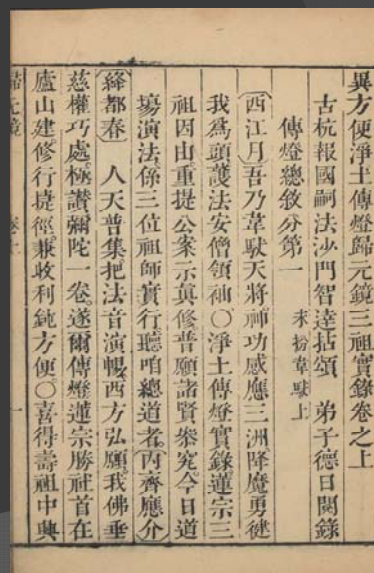 異方便淨土傳燈歸元鏡三祖實錄卷之上
古杭報國嗣法沙門智達拈頌 弟子德日閱錄
傳燈總敘分第一
末扮韋馱上
(西江月)吾乃韋馱天將神功感應三洲降魔勇健
我爲頭護法安僧領袖〇淨土傳燈實錄蓮宗三
祖因由重提公案示真修普願諸賢叅究。今日道
塲演法係三位祖師實行聽咱總道者。(內齊應介)
(絳都春) 人天普集把法音演暢西方弘願。我佛垂
慈權巧處。極讚彌陀一卷。遂爾傳燈蓮宗勝社首在
廬山建修行捷徑。兼收利鈍方便〇喜得壽祖中興
歸元鏡 卷上 一